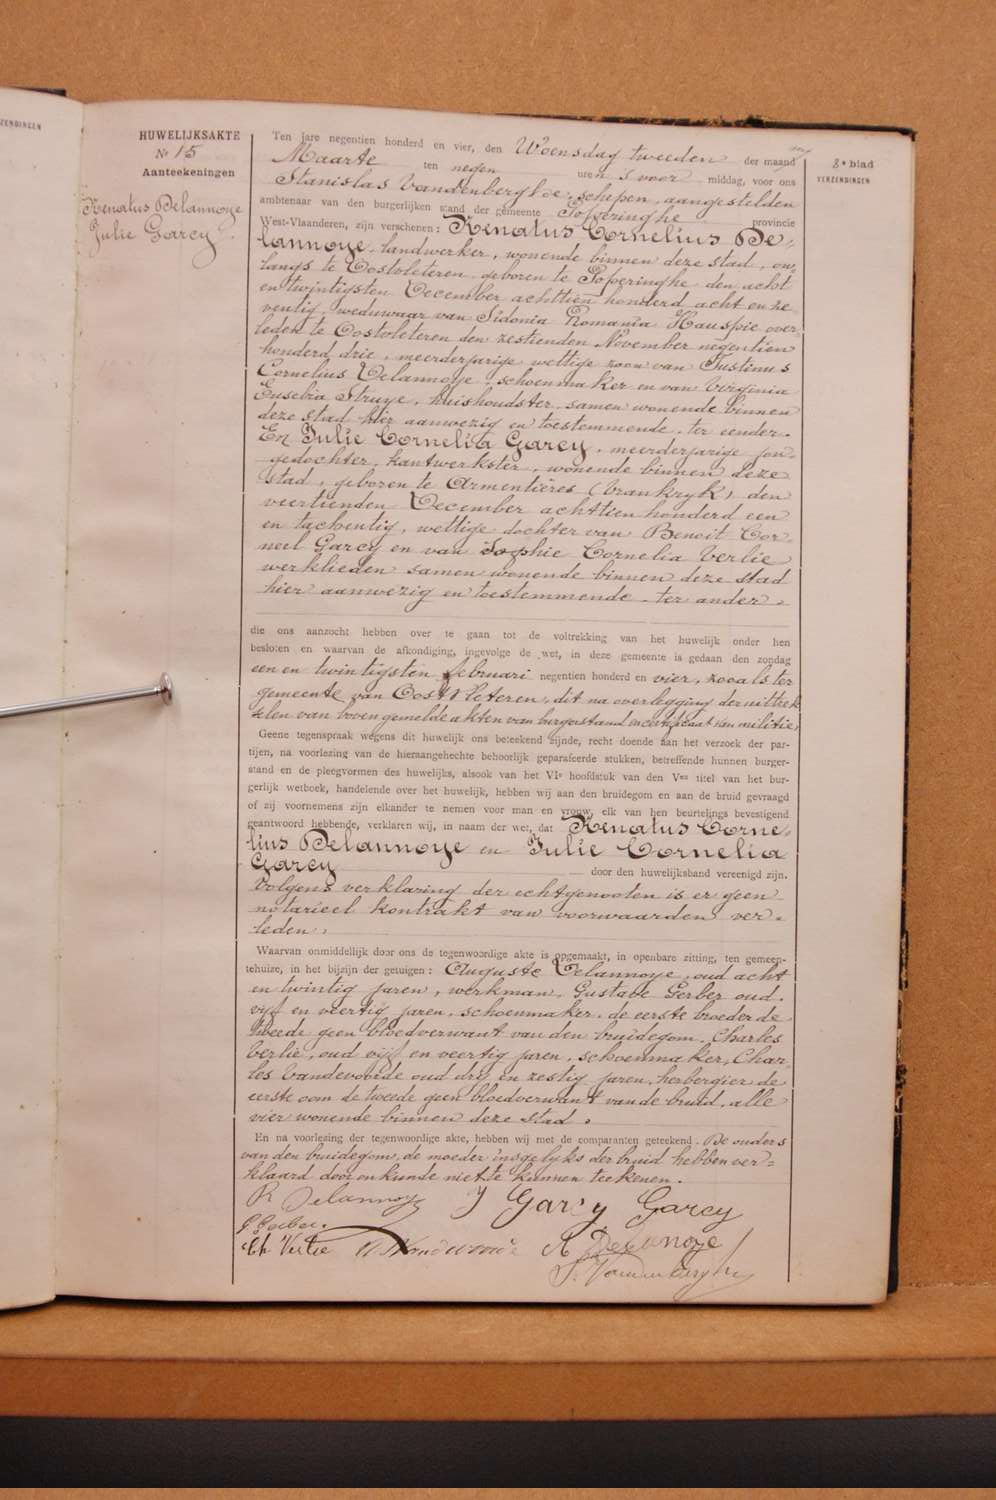 ZENDINGEN
HUWELIJKSAKTE
Nr 15
Aanteekeningen
Renatus Delannoye
Julie Garcy
8e blad
VERZENDINGEN
Ten jare negentien honderd en vier, den Woensdag tweeden der maand
Maarte ten negen uren s voor middag, voor ons
Stanislas Vandenberghe, schepen, aangestelden
ambtenaar van den burgerlijken stand der gemeente Poperinghe provincie
West-Vlaanderen, zijn verschenen: Renatus Cornelius De-
lannoye, landwerker, wonende binnen deze stad, on-
langs te Oostvleteren, geboren te Poperinghe den acht
en twintigsten December achttien honderd acht en ze
ventig, weduwaar van Sidonia Romania Hauspie over-
leden te Oostvleteren den zestienden November negentien
honderd drie, meerderjarige wettige zoon van Justinus
Cornelius Delannoye, schoenmaker en van Virginia
Eusebia Struye, huishoudster, samen wonende binnen
deze stad hier aanwezig en toestemmende, ter eender.
En Julie Cornelia Garcy, meerderjarige jon-
gedochter, kantwerkster, wonende binnen deze
stad, geboren te Armentières (Vrankryk) den
veertienden December achttien honderd een
en tachentig, wettige dochter van Benoit Cor-
neel Garcy en van Sophie Cornelia Verlie
werklieden samen wonende binnen deze stad
hier aanwezig en toestemmende, ter ander.
die ons aanzocht hebben over te gaan tot de voltrekking van het huwelijk onder hen
besloten en waarvan de afkondiging, ingevolge de wet, in deze gemeente is gedaan den zondag
een en twintigsten februari negentien honderd en vier, zooals ter
gemeente van Oostvleteren, dit na overlegging der uittrek
selen van bovengemelde akten van burgerstand en certificaat van militie,
Geene tegenspraak wegens dit huwelijk ons beteekend zijnde, recht doende aan het verzoek der par-
tijen, na voorlezing van de hieraangehechte behoorlijk geparafeerde stukken, betreffende hunnen burger-
stand en de pleegvormen des huwelijks, alsook van het VIe hoofdstuk van den Ven titel van het bur-
gerlijk wetboek, handelende over het huwelijk, hebben wij aan den bruidegom en aan de bruid gevraagd
of zij voornemens zijn elkander te nemen voor man en vrouw, elk van hen beurtelings bevestigend
geantwoord hebbende, verklaren wij, in naam der wet, dat Renatus Corne,
lius Delannoye en Julie Cornelia
Garcy door den huwelijksband vereenigd zijn.
Volgens verklaring der echtgenooten is er geen
notarieel kontrakt van voorwaarden ver-
leden.
Waarvan onmiddellijk door ons de tegenwoordige akte is opgemaakt, in openbare zitting, ten gemeen-
tehuize, in het bijzijn der getuigen: Auguste Delannoye, oud acht
en twintig jaren, werkman, Gustave Gerber oud.
vijf en veertig jaren, schoenmaker, de eerste broeder de
tweede geen bloedverwant van den bruidegom. Charles
Verlie, oud vijf en veertig jaren, schoenmaker, Char-
les Vandevoorde oud dry en zestig jaren, herbergier de
eerste oom de tweede geen bloedverwant van de bruid, alle
vier wonende binnen deze stad.
En na voorlezing der tegenwoordige akte, hebben wij met de comparanten geteekend. De ouders
van den bruidegom, de moeder insgelyks der bruid hebben ver-
klaard door onkunde niet te kunnen teekenen.
R Delannoye J Garcy Garcy
G Gerber.
Ch Verlie A Delanoye
S. Vandenberghe